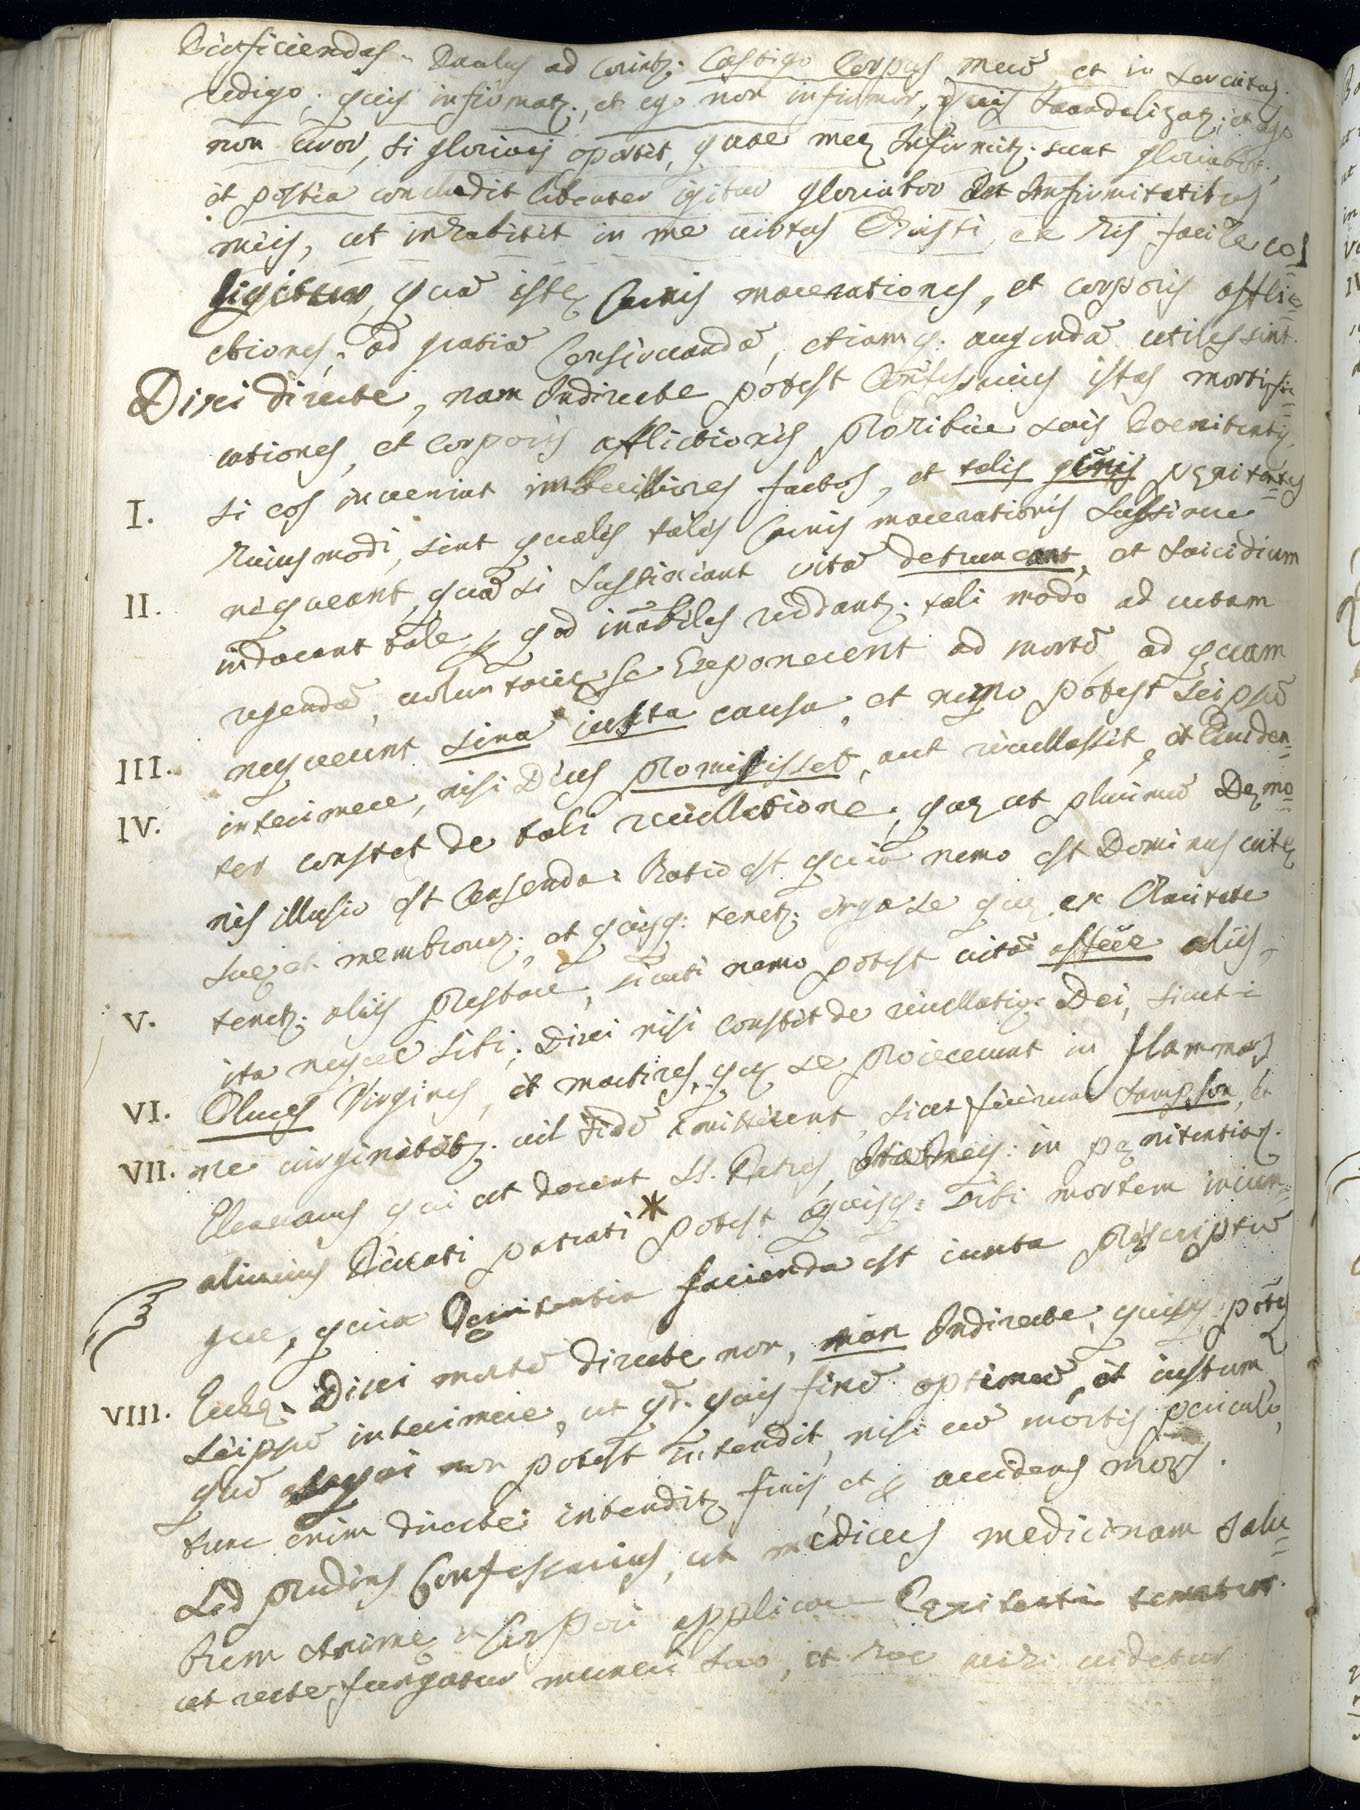 Paulus ad Corintz. Castigo Corpus meũ, et in
redigo, quis infirmatz., et ego non infirmor, quis scandalizatz., et ego
non uror, si gloriari oportet, quae meę Infirmitz. sunt gloriabor,
et postea concludit libenter igitur gloriabor in Infirmitatibus
meis, ut inhabitet in me virtus Christi, ex his facile col
ligitur, quã istę Carnis macerationes, et corporis afflic=
ctiones, ad gratiã Conservandã, etiamq. augendã utiles sint.
Dixi directe, nam Indirecte potest Confessarius istas mortifi=
cationes, et corporis afflictionis prohibere suis Poenitentis,
I. si eos inveniat imbecilliores factos, et talis
huiusmodi, sint qualis talis Carnis macerationis sustinere
II. nequeant, quã si sustineant vitã detruncant, et suicidium
inducant tale, quod inhabiles reddantz. tali modo ad vitam
regendã, voluntarie se Exponerent ad mortẽ, ad quam
III. nequeunt sine iusta causa, et nemo potest seipsũ
interimere, nisi Deus promisisset, aut revellassit, et Eviden=
IV. ter constet de tali revellatione, quę ut plurimũ Dęmo=
nis illusio est Censenda. Ratio est quia nemo est Dominus vitę
suę, et membrorũ, et quisq. tenetz. erga se quę ex Charitate
V. tenetz. aliis prestare, sicuti nemo potest vitã aliis,
ita neque sibi, Dixi nisi Constet de revellatioe Dei, sicuti
VI. Virgines, et martires, quę se proiecerunt in flammas
VII. ne virginitatz. vel fidẽ amitterent, sicut fecerunt Sampson, et
Eleazarus qui ut docent SS. Patres, in pęnitentias.
alicuius Peccati patrati * potest quisq. sibi mortem
quia Pęnitentia facienda est iuxta prescriptũ
VIII. Dixi mortẽ directe non, nam Indirecte, quisq. potest
seipsũ interimere, ut qd. quis finẽ optimũ, et iustum,
quẽ non potest intendit, nisi cũ mortis periculo,
tunc enim directe intenditz finis, et p accidens mors.
Sed prudens Confessarius, ut medicus medicinam salu=
brem Animę, et Corpori applicare Pęnitenti tenetur.
ut recte fungatur munere suo, et hoc mihi videtur